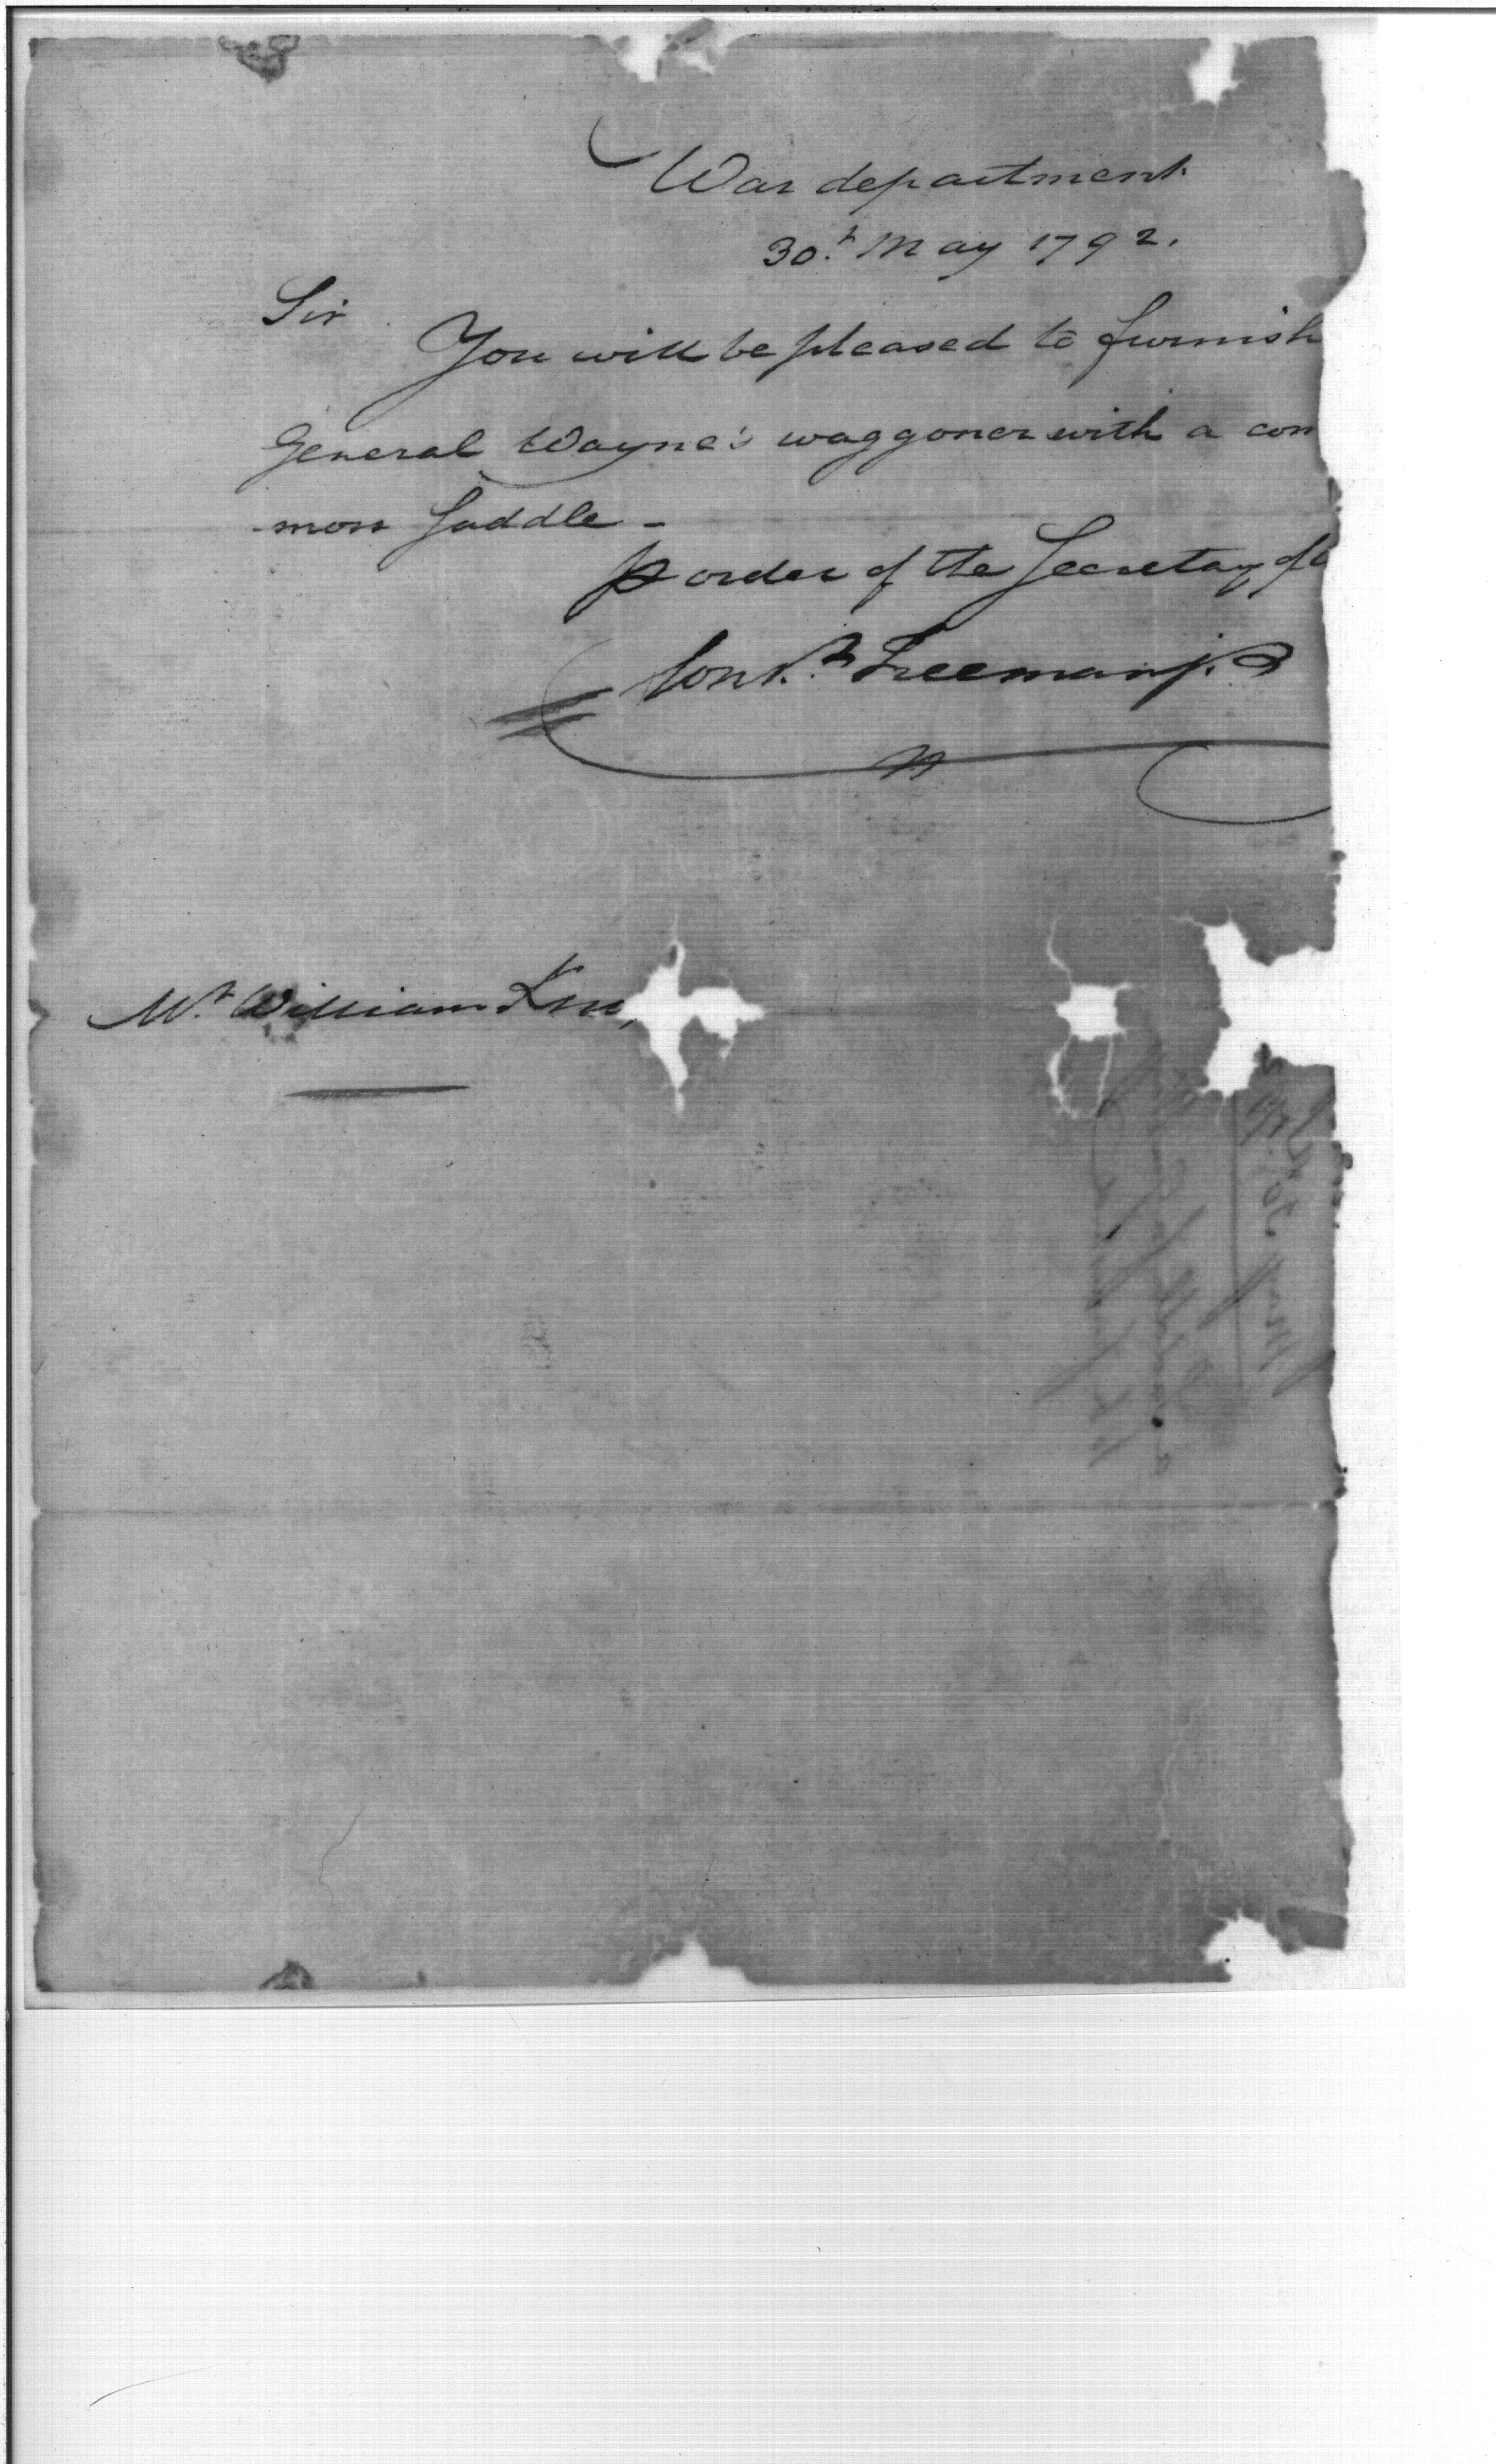 War department
30.t May 1792.
Sir
You will be pleased to furnish
General Wayne's waggoner with a com
-mon Saddle -
p order of the Secretay of
Const.t Freeman jr
Mr. William Kno
May 30th